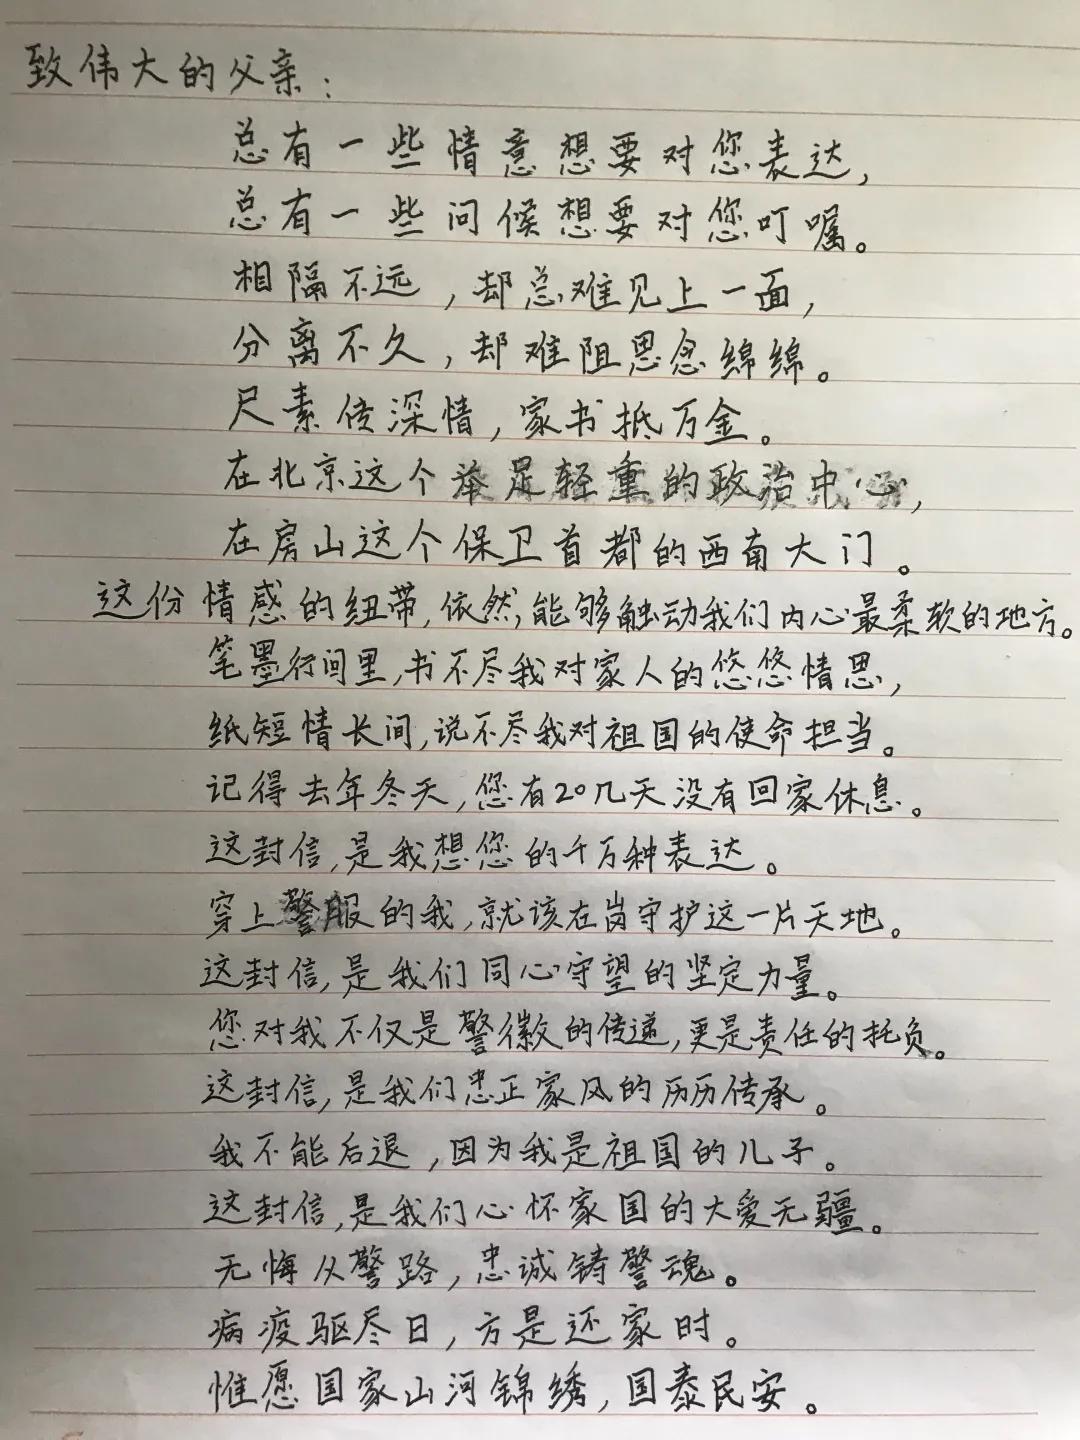 致伟大的父亲：
总有一些情意想要对您表达，
总有一些问候想要对您叮嘱。
相隔不远，却总难见上一面，
分离不久，却难阻思念绵绵。
尺素传深情，家书抵万金。
在北京这个举足轻重的政治中心，
在房山这个保卫首都的西南大门。
这份情感的纽带，依然，能够触动我们内心最柔软的地方。
笔墨行间里，书不尽我对家人的悠悠情思，
纸短情长间，说不尽我对祖国的使命担当。
记得去年冬天，您有20几天没有回家休息。
这封信，是我想您的千万种表达。
穿上警服的我，就该在岗守护这一片天地。
这封信，是我们同心守望的坚定力量。
您对我不仅是警徽的传递，更是责任的托负。
这封信，是我们忠正家风的历历传承。
我不能后退，因为我是祖国的儿子。
这封信，是我们心怀家国的大爱无疆。
无悔从警路，忠诚铸警魂。
病疫驱尽日，方是还家时。
惟愿国家山河锦绣，国泰民安。